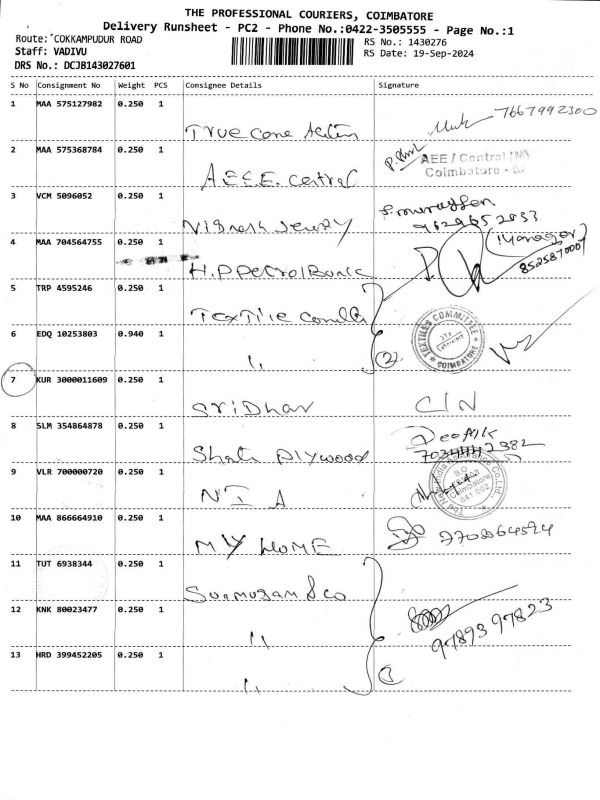 THE PROFESSIONAL COURIERS, COIMBATORE
Delivery Runsheet - PC2 - Phone No.:0422-3505555 - Page No.:1
Route: COKKAMPUDUR ROAD
RS No.: 1430276
Staff: VADIVU
RS Date: 19-Sep-2024
DRS No.: DCJB143027601
S No Consignment No Weight PCS Consignee Details Signature
1 MAA 575127982 0.250 1
True cone 7667992300
2 MAA 575368784 0.250 1
A.E.E.E. central AEE / Central
Coimbatore
3 VCM 5096052 0.250 1
4 MAA 704564755 0.250 1
H.P Petrol Bunk (Manager)
8525870007
5 TRP 4595246 0.250 1
Textile TEXTILES COMMITTEE
COIMBATORE
6 EDQ 10253803 0.940 1
" 2
7 KUR 3000011609 0.250 1
Sridhar C/N
8 SLM 354864878 0.250 1
plywood Deepik
9 VLR 700000720 0.250 1
N I A Coimbatore
641 002
10 MAA 866664910 0.250 1
MY HOME
11 TUT 6938344 0.250 1
& co
12 KNK 80023477 0.250 1
" 9789397823
13 HRD 399452205 0.250 1
" 3